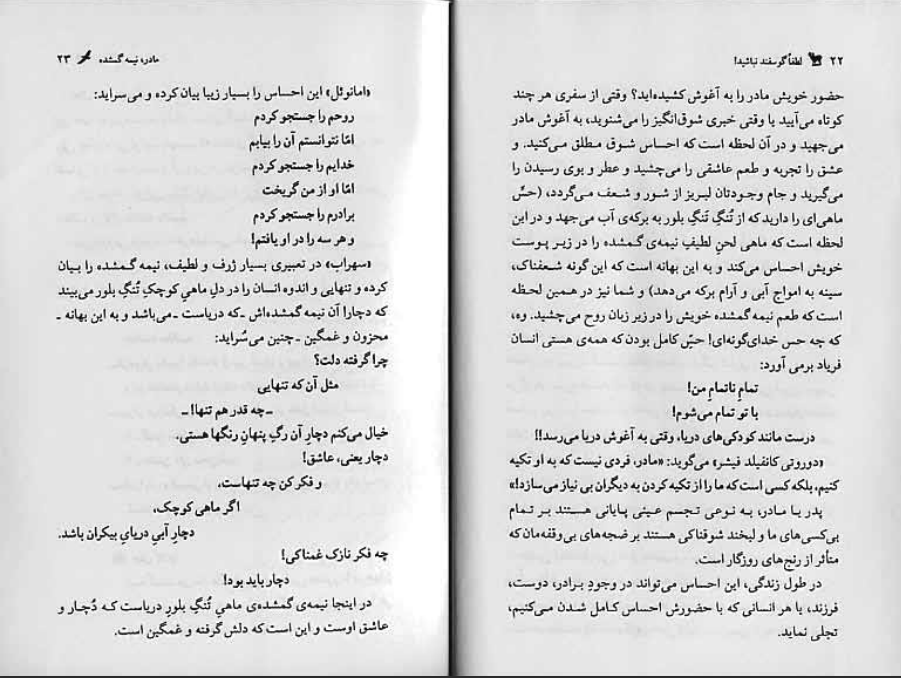 ۲۲ لطفاً گوسفند نباشید!
حضور خویش مادر را به آغوش کشیده‌اید؟ وقتی از سفری هر چند
کوتاه می‌آیید یا وقتی خبری شوق‌انگیز را می‌شنوید، به آغوش مادر
می‌جهید و در آن لحظه است که احساس شوق مطلق می‌کنید. و
عشق را تجربه و طعم عاشقی را می‌چشید و عطر و بوی رسیدن را
می‌گیرید و جام وجودتان لبریز از شور و شعف می‌گردد، (حسِّ
ماهی‌ای را دارید که از تُنگِ تَنگِ بلور به برکه‌ی آب می‌جهد و در این
لحظه است که ماهی لحنِ لطیفِ نیمه‌ی گمشده را در زیر پوست
خویش احساس می‌کند و به این بهانه است که این گونه شعفناک،
سینه به امواج آبی و آرام برکه می‌دهد) و شما نیز در همین لحظه
است که طعم نیمه گمشده خویش را در زیر زبان روح می‌چشید. وه،
که چه حس خدای‌گونه‌ای! حسِّ کامل بودن که همه‌ی هستی انسان
فریاد برمی آورد:
تمامِ ناتمامِ من!
با تو تمام می‌شوم!
درست مانند کودکی‌های دریا، وقتی به آغوش دریا می‌رسد!!
«دوروتی کانفیلد فیشر» می‌گوید: «مادر، فردی نیست که به او تکیه
کنیم، بلکه کسی است که ما را از تکیه کردن به دیگران بی نیاز می‌سازد!»
پدر یا مادر، به نوعی تجسم عینی پایانی هستند بر تمام
بی‌کسی‌های ما و لبخند شوقناکی هستند بر ضجه‌های بی‌وقفه‌مان که
متأثر از رنج‌های روزگار است.
در طول زندگی، این احساس می‌تواند در وجودِ برادر، دوست،
فرزند، یا هر انسانی که با حضورش احساس کامل شدن می‌کنیم،
تجلی نماید.
مادر، نیمه گمشده ۲۳
«امانوئل» این احساس را بسیار زیبا بیان کرده و می‌سراید:
روحم را جستجو کردم
امّا نتوانستم آن را بیابم
خدایم را جستجو کردم
امّا او از من گریخت
برادرم را جستجو کردم
و هر سه را در او یافتم!
«سهراب» در تعبیری بسیار ژرف و لطیف، نیمه گمشده را بیان
کرده و تنهایی و اندوه انسان را در دلِ ماهیِ کوچکِ تُنگِ بلور می‌بیند
که دچارا آن نیمه گمشده‌اش ـ که دریاست ـ می‌باشد و به این بهانه ـ
محزون و غمگین ـ چنین می‌سُراید:
چرا گرفته دلت؟
مثل آن که تنهایی
ـ چه قدر هم تنها! ـ
خیال می‌کنم دچارِ آن رگِ پنهانِ رنگها هستی.
دچار یعنی، عاشق!
و فکر کن چه تنهاست،
اگر ماهی کوچک،
دچارِ آبیِ دریایِ بیکران باشد.
چه فکر نازک غمناکی!
دچار باید بود!
در اینجا نیمه‌ی گمشده‌ی ماهیِ تُنگِ بلور دریاست که دُچار و
عاشق اوست و این است که دلش گرفته و غمگین است.